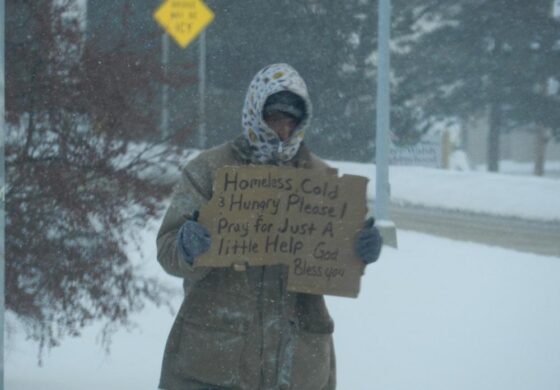 BRIDGE
MAY BE
ICY
Homeless, Cold
& Hungry Please!
Pray for Just A
little Help God
Bless you